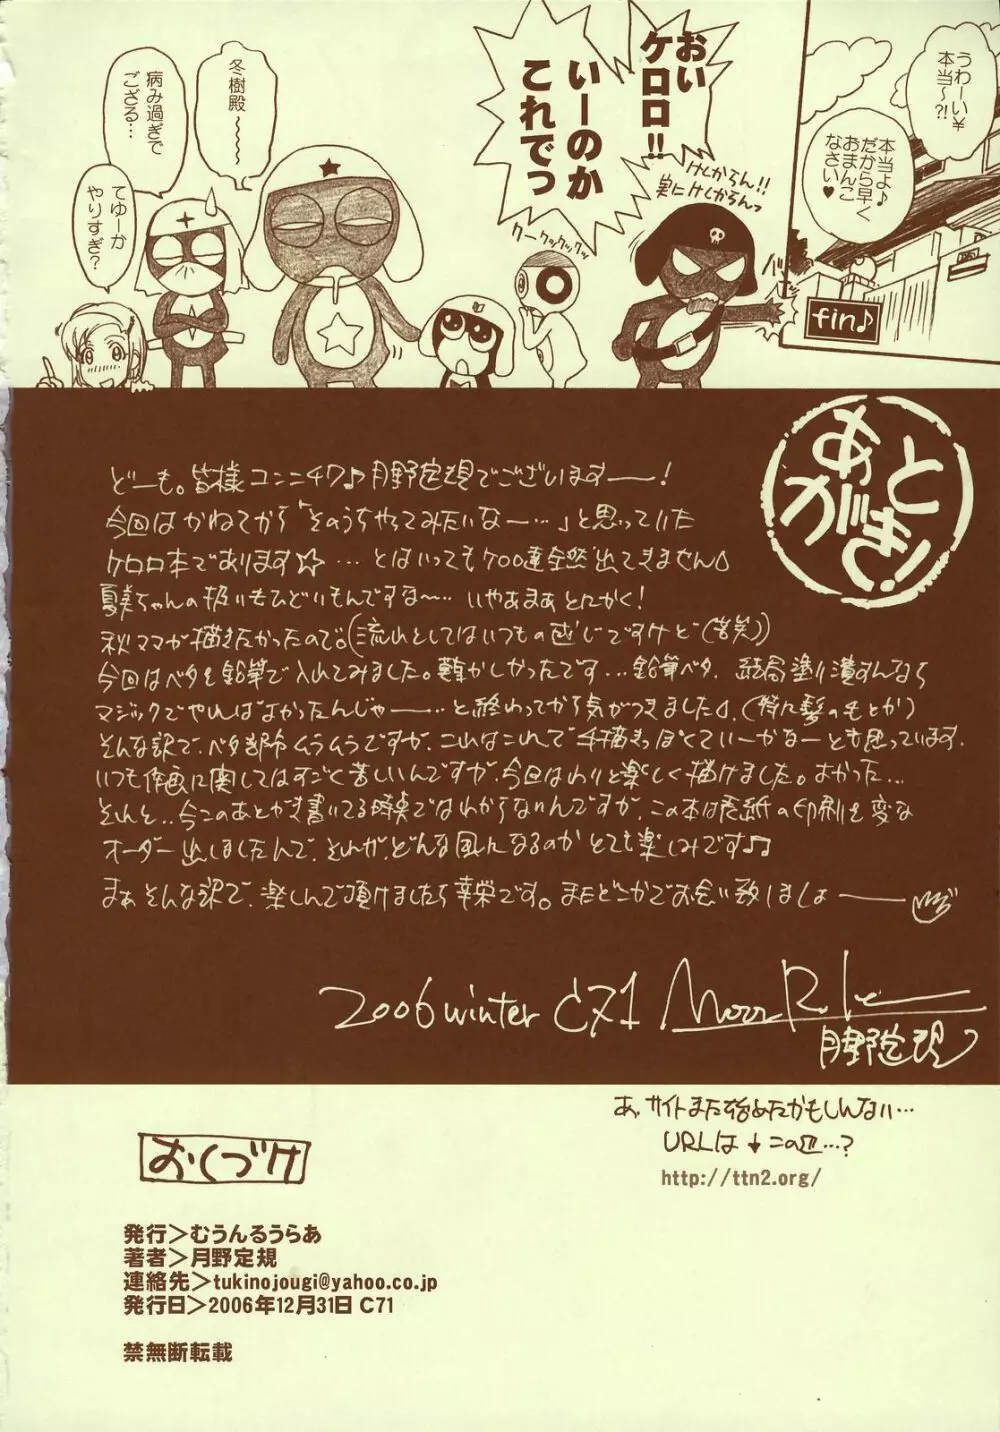 おい
ケロロ!!
いーのか
これでっ
けしからん!!
実にけしからんっ
クークックックッ
冬樹殿〜〜〜
病み過ぎで
ござる…
てゆーか
やりすぎ?
fin♪
あとがき!
どーも。皆様コンニチワ♪月野定規でございますーー!
今回はかねてから「そのうちやってみたいなー…」と思っていた
ケロロ本であります☆…とはいってもケロロ達全然出てきません
夏美ちゃんの扱いもひどいもんですな〜…いやあまぁとにかく!
秋ママが描きたかったので。(流れとしてはいつもの感じですけど(苦笑))
今回はベタを鉛筆で入れてみました。難かしかったです…鉛筆ベタ、結局塗り潰すんなら
マジックでやればよかったんじゃーー…と終わってから気がつきました。(特に髪のもとか)
そんな訳で、ベタ部分ムラムラですが、これはこれで手描きっぽくていーかなーとも思っています。
いつも作画に関してはすごく苦しいんですが、今回はわりと楽しく描けました。よかった…
それと..今このあとがき書いてる時点ではわからないんですが、この本は表紙の印刷を変な
オーダー出しましたんで、それが、どんな風になるのかとても楽しみです♪♪
まぁそんな訳で、楽しんで頂けましたら幸栄です。またどこかでお会い致しましょーー
2006 winter C71
月野定規
あ、サイトまた始めたかもしんない…
URLは↓この辺…?
おくづけ
発行＞むうんるうらあ
著者＞月野定規
発行日＞2006年12月31日 C71
禁無断転載